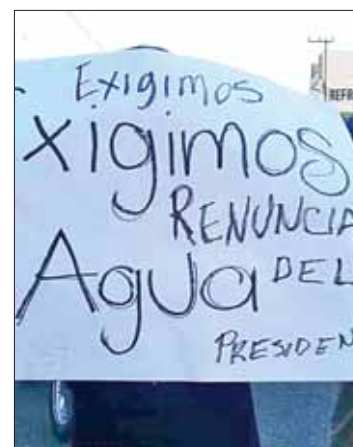 Exigimos
xigimos
RENUNCIA
Agua DEL
PRESIDEN
REFR